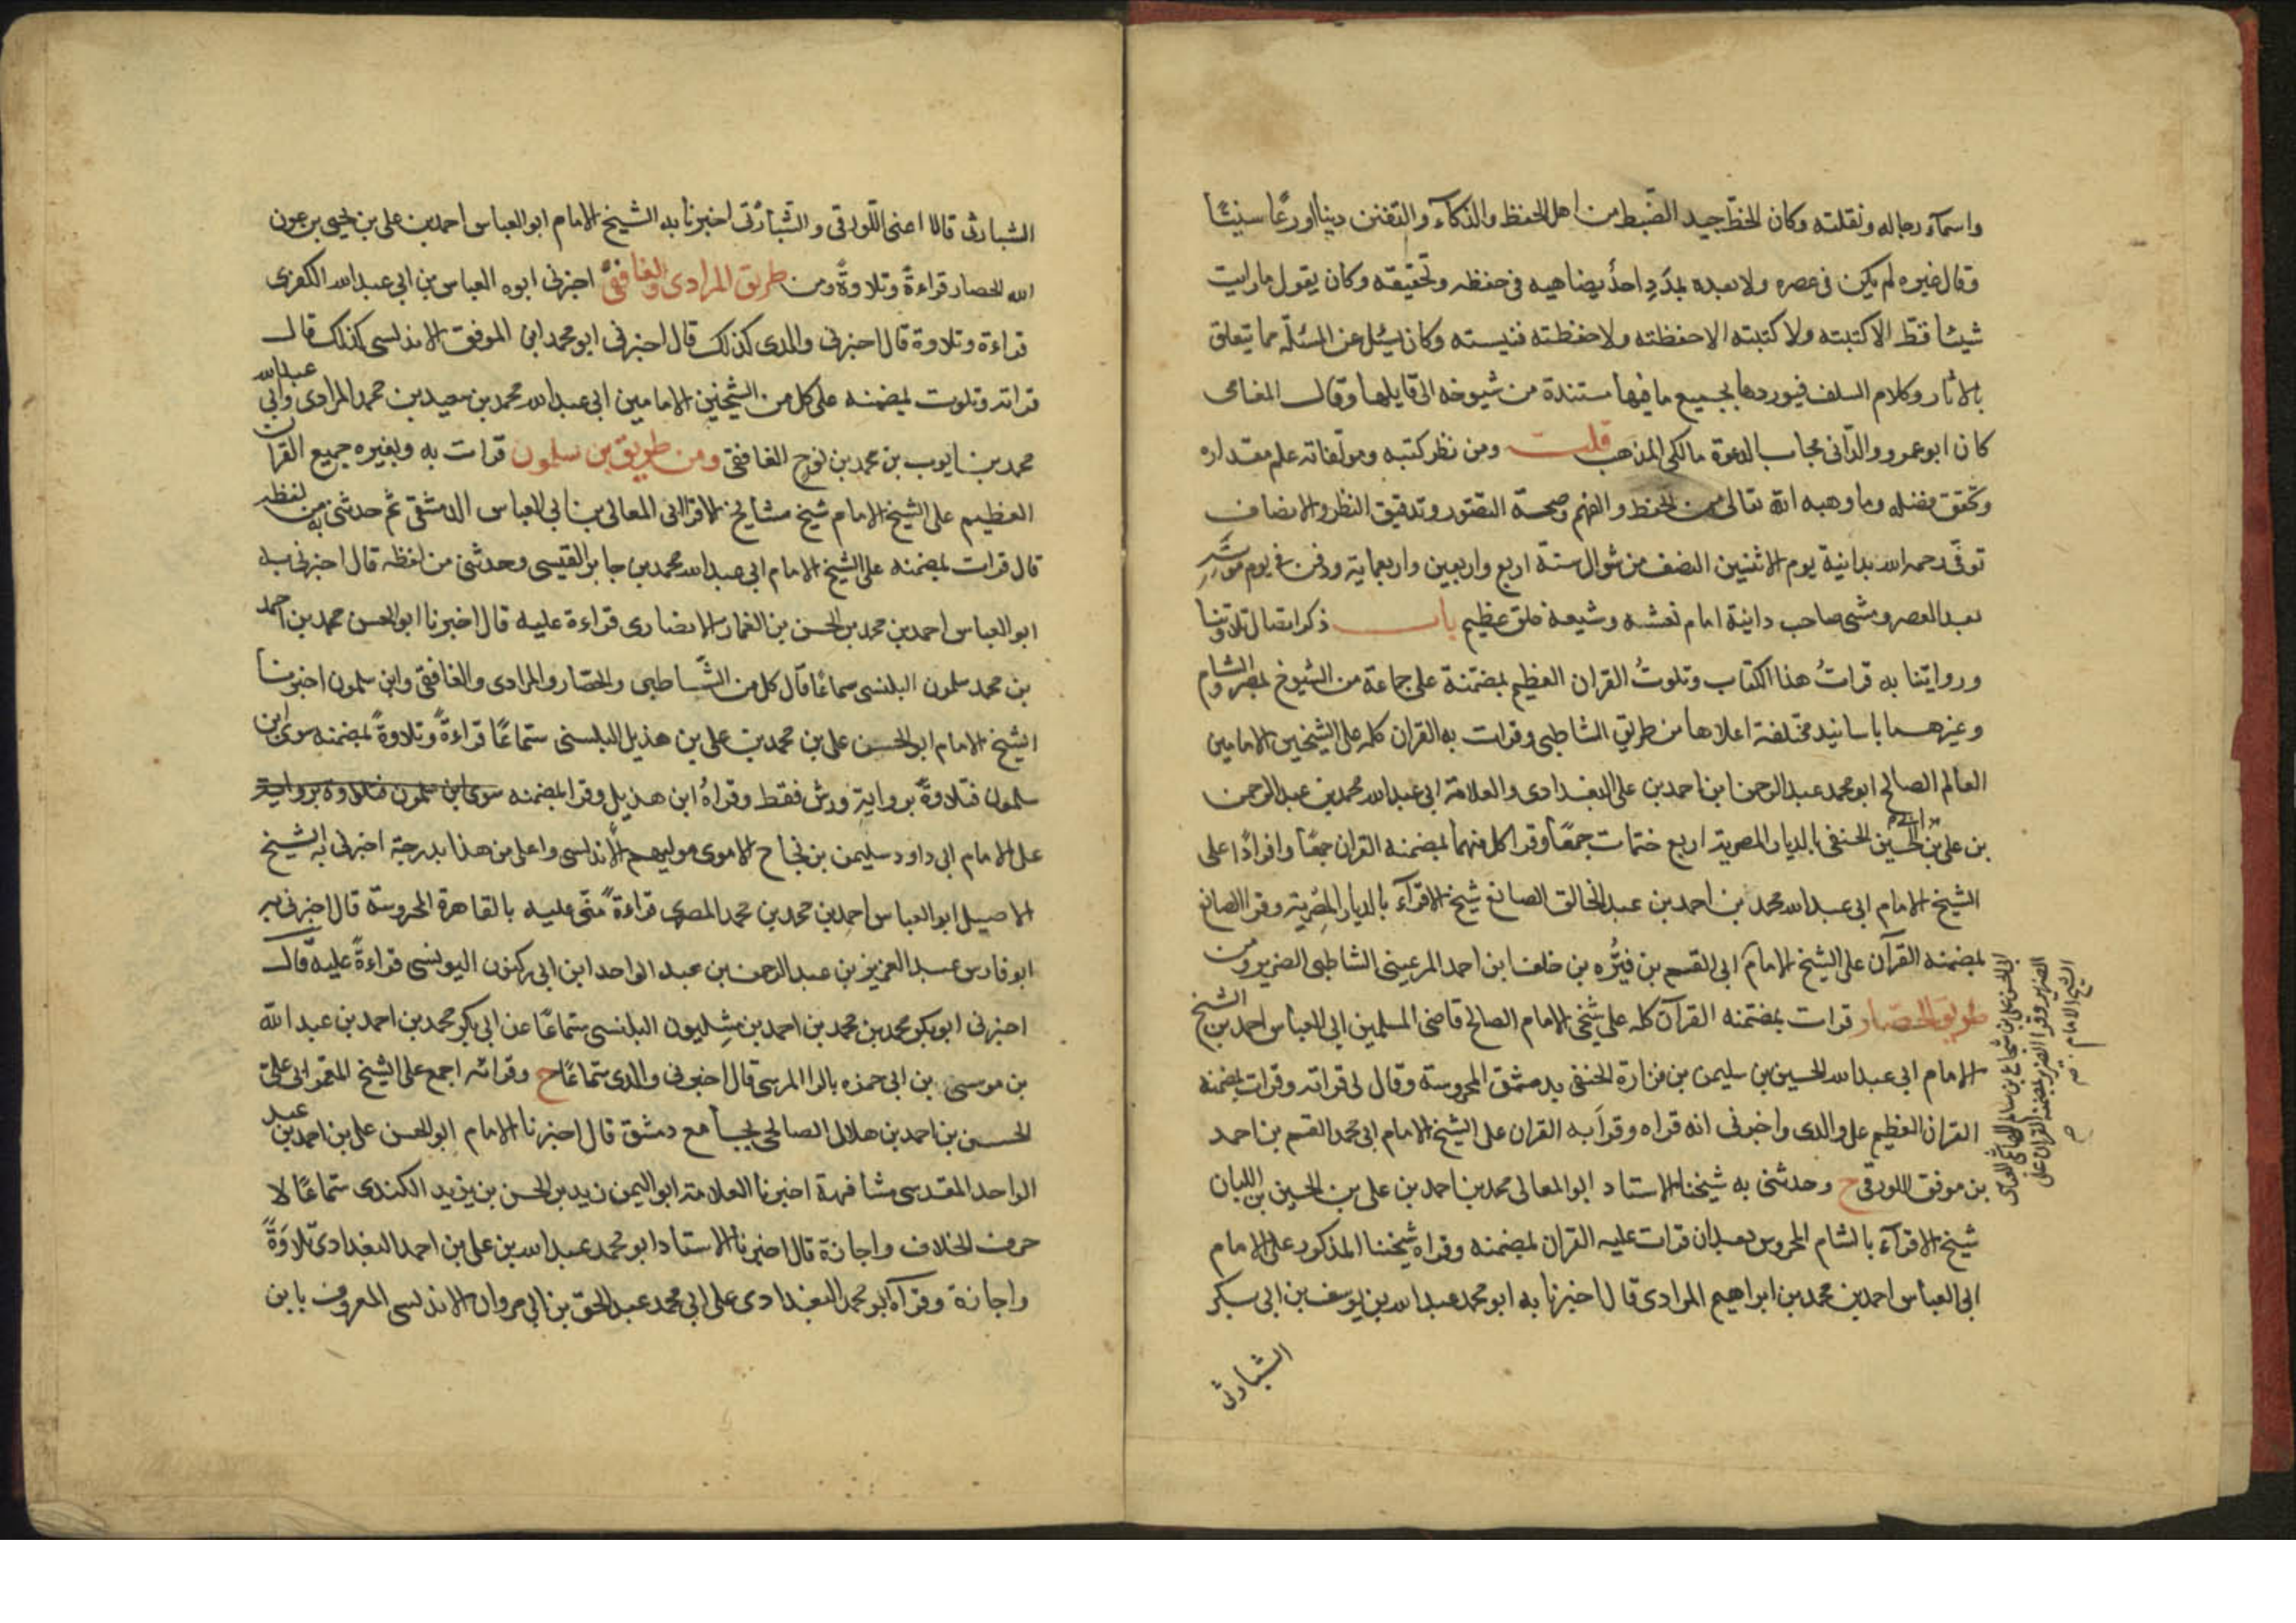 واسمآء رجاله ونقلته وكان الخطّ جيد الضّبط من اهل الحفظ والذكآء والتفنن دينا اورعًا سنيًّا
وقال غيره لم يكن فى عصره ولا بعده بمُدَدٍ احدٌ يضاهيه فى حفظه وتحقيقه وكان يقول ما رايت
شيئا قطّ الا كتبته ولا كتبته الا حفظته ولا حفظته فنيسته وكان يسُئل عن المسُئلة مما يتعلق
بالاثار وكلام السلف فيوردها بجميع ما فيها مستندة من شيوخه الى قايلها وقال المغامى
كان ابو عمرو والدّانى مجاب الدعوة مالكى المذهب قلت ومن نظر كتبه ومولّفاته علم مقداره
وتحقق فضله وما وهبه الله تعالى من الحفظ والفهم وصحة التصّور وتدقيق النظر والانصاف
توفّى رحمه الله بدانية يوم الاثنين النصف من شوال سنة اربع واربعين واربعماية ودفن فى يوم موته
بعد العصر ومشى صاحب دانية امام نعشه وشيعه خلق عظيم باب ذكر اتصال تلاوتنا
وروايتنا به قراتُ هذا الكتاب وتلوتُ القران العظيم بمضمنه على جماعة من الشيوخ بمصر والشام
وغيرهما باسانيد مختلفة اعلاها من طريق الشاطبى وقرات به القران كله على الشيخين الامامين
العالم الصالح ابو محمد عبد الرحمن ابن احمد بن على البغدادى والعلامة ابى عبد الله محمد بن عبد الرحمن
بن على بن الحسين الحنفى بالديار المصرية اربع ختمات جمعًا وقرا كل منهما بمضمنه القران جمعًا وافرادًا على
الشيخ الامام ابى عبد الله محمد بن احمد بن عبد الخالق الصائغ شيخ الاقرآء بالديار المصريّة وقرا الصائغ
بمضمنه القرآن على الشيخ الامام ابى القسم بن فيرُّه بن خلف ابن احمد الرعينى الشاطبى الضرير ومن
طريق الحصّار قرات بمضمنه القرآن كله على شيخى الامام الصالح قاضى المسلمين ابى العباس احمد بن الشيخ
الامام ابى عبد الله الحسين بن سليمن بن فزارة الحنفى بدمشق المحروسة وقال لى قراته وقرات بمضمنه
القران العظيم على والدى واخبرنى انه قراه وقرأ به القران على الشيخ الامام ابى محمد القسم بن احمد
بن موفق اللورقى ح وحدثنى به شيخنا الاستاد ابو المعالى محمد بن احمد بن على بن الحسين بن اللبان
شيخ الاقرآء بالشام المحروس بعد ان قرات عليه القران بمضمنه وقراه شيخنا المذكور على الامام
ابى العباس احمد بن محمد بن ابراهيم المرادى قال اخبرنا به ابو محمد عبد الله بن يوسف بن ابى بكر
الشبارتى
ابى الحسن على بن شجاع بن سالم الهاشمى العباسى
الضرير وقرا الضرير بمضمنه القران على
الشيخ الامام
الشبارتى قالا اعنى اللّورقى والشّبارتى اخبرنا به الشيخ الامام ابو العباس احمد بن على بن يحيى بن عون
الله الحصار قراءةً وتلاوةً ومن طريق المرادى والغافقىّ اخبرنى ابوه العباس بن ابى عبد الله الكفرى
قراءة وتلاوة قال اخبرنى والدى كذلك قال اخبرنى ابو محمد ابن الموفق الاندلسى كذلك قال
قراته وتلوت بمضمنه على كل من الشيخين الامامين ابى عبد الله محمد بن سعيد بن محمد المرادى وابى عبد الله
محمد بن ايوب بن محمد بن نوح الغافقى ومن طريق بن سلمون قرات به وبغيره جميع القران
العظيم على الشيخ الامام شيخ مشايخ الاقرا ابى المعالى بن ابى العباس الدمشقى ثم حدثنى به من لفظه
قال قرات بمضمنه على الشيخ الامام ابى عبد الله محمد بن جابر القيسى وحدثنى من لفظه قال اخبرنى به
ابو العباس احمد بن محمد بن الحسن بن الغماز الانصارى قراءة عليه قال اخبرنا ابو الحسن محمد بن احمد
بن محمد سلمون البلنسى سماعًا قال كل من الشّاطبى والحصّار والمرادى والغافقى وابن سلمون اخبرنا
الشيخ الامام ابو الحسن على بن محمد بن على بن هذيل البلسنى سَمَاعًا قراءةً وتلاوةً بمضمنه سوى ابن
سلمون فتلاوةً برواية ورش فقط وقراهُ ابن هذيل وقرا بمضمنه سوى ابن سلمون فتلاوة برواية
على الامام ابى داود سليمن بن نجاح الاموى موليهم الاندلسى واعلى من هذا بدرجة اخبرنى به الشيخ
الاصيل ابو العباس احمد بن محمد بن محمد المصرى قراءةً منّى عليه بالقاهرة المحروسة قال اخبرنى به
ابو فارس عبد العزيز بن عبد الرحمن بن عبد الواحد ابن ابى زكنون اليونسى قراءةً عليه قال
اخبرنى ابو بكر محمد بن محمد بن احمد بن مشِليون البلنسى سَماعًا عن ابى بكر محمد بن احمد بن عبد الله
بن موسى بن ابى حمزه بالرا المرسى قال اخبرنى والدى سَماعًا ح وقراته اجمع على الشيخ المعمر ابى علىّ
الحسن بن احمد بن هلال الصالحى بجامع دمشق قال اخبرنا الامام ابو الحسن على بن احمد بن عبد
الواحد المقدسى مشافهة اخبرنا العلامة ابو اليمن زيد بن الحسن بن يزيد الكندى سَماعًا لا
حرف الخلاف واجازة قال اخبرنا الاستاد ابو محمد عبد الله بن على بن احمد البغدادىّ تلاوَةً
واجازة وقرآه ابو محمد البغدادى على ابى محمد عبد الحقّ بن ابى مروان الاندلسى المعروف بابن